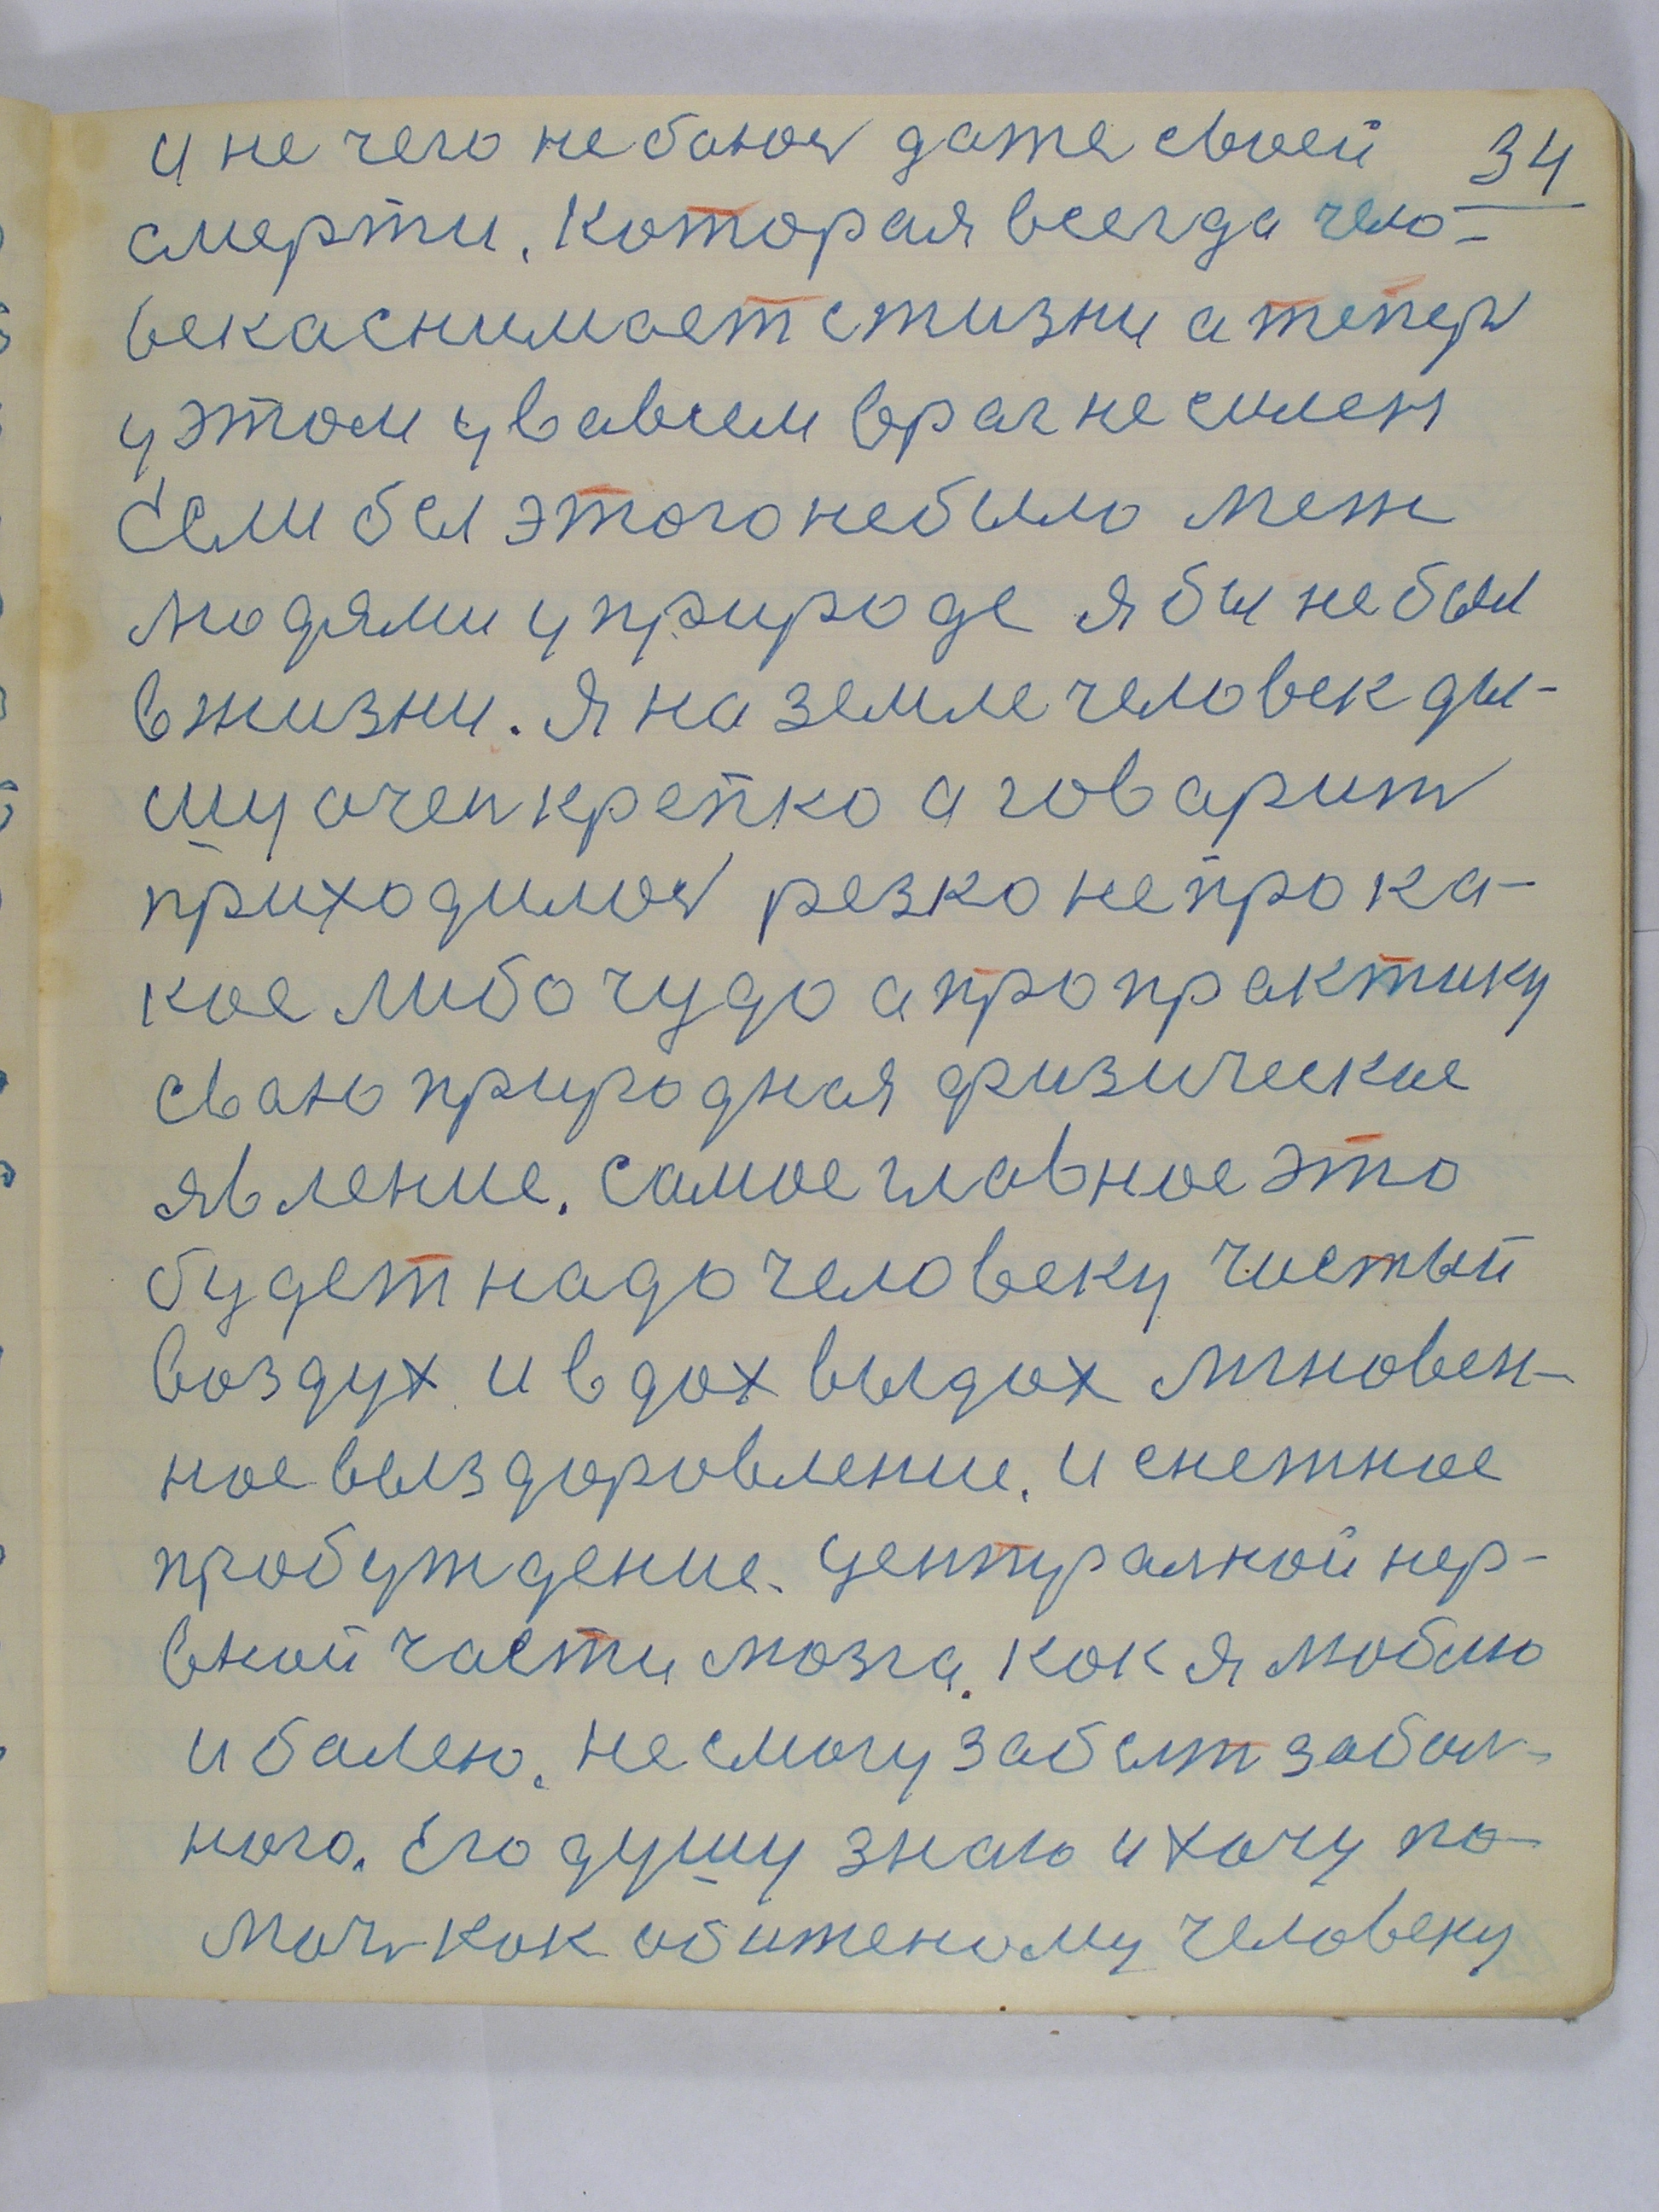 и не чего не баюсь даже своей 34
смерти. Которая всегда чело-
века снимает с жизни а теперь
у этом у вавсем враг не силен
Если бы этого небыло меж
людями у природе я бы не был
в жизни. Я на земле человек ды-
шу очен крепко а говарить
приходилось резко не про ка-
кое либо чудо а про практику
сваю природная физическое
явление. Самое главное это
будет надо человеку чистый
воздух и вдох выдох мгновен-
ное выздоровление. и снежное
пробуждение. централной нер-
вной части мозга. как я люблю
и балею. не смогу забыт забол-
ного. Его душу знаю и хочу по-
моч как обиженому человеку